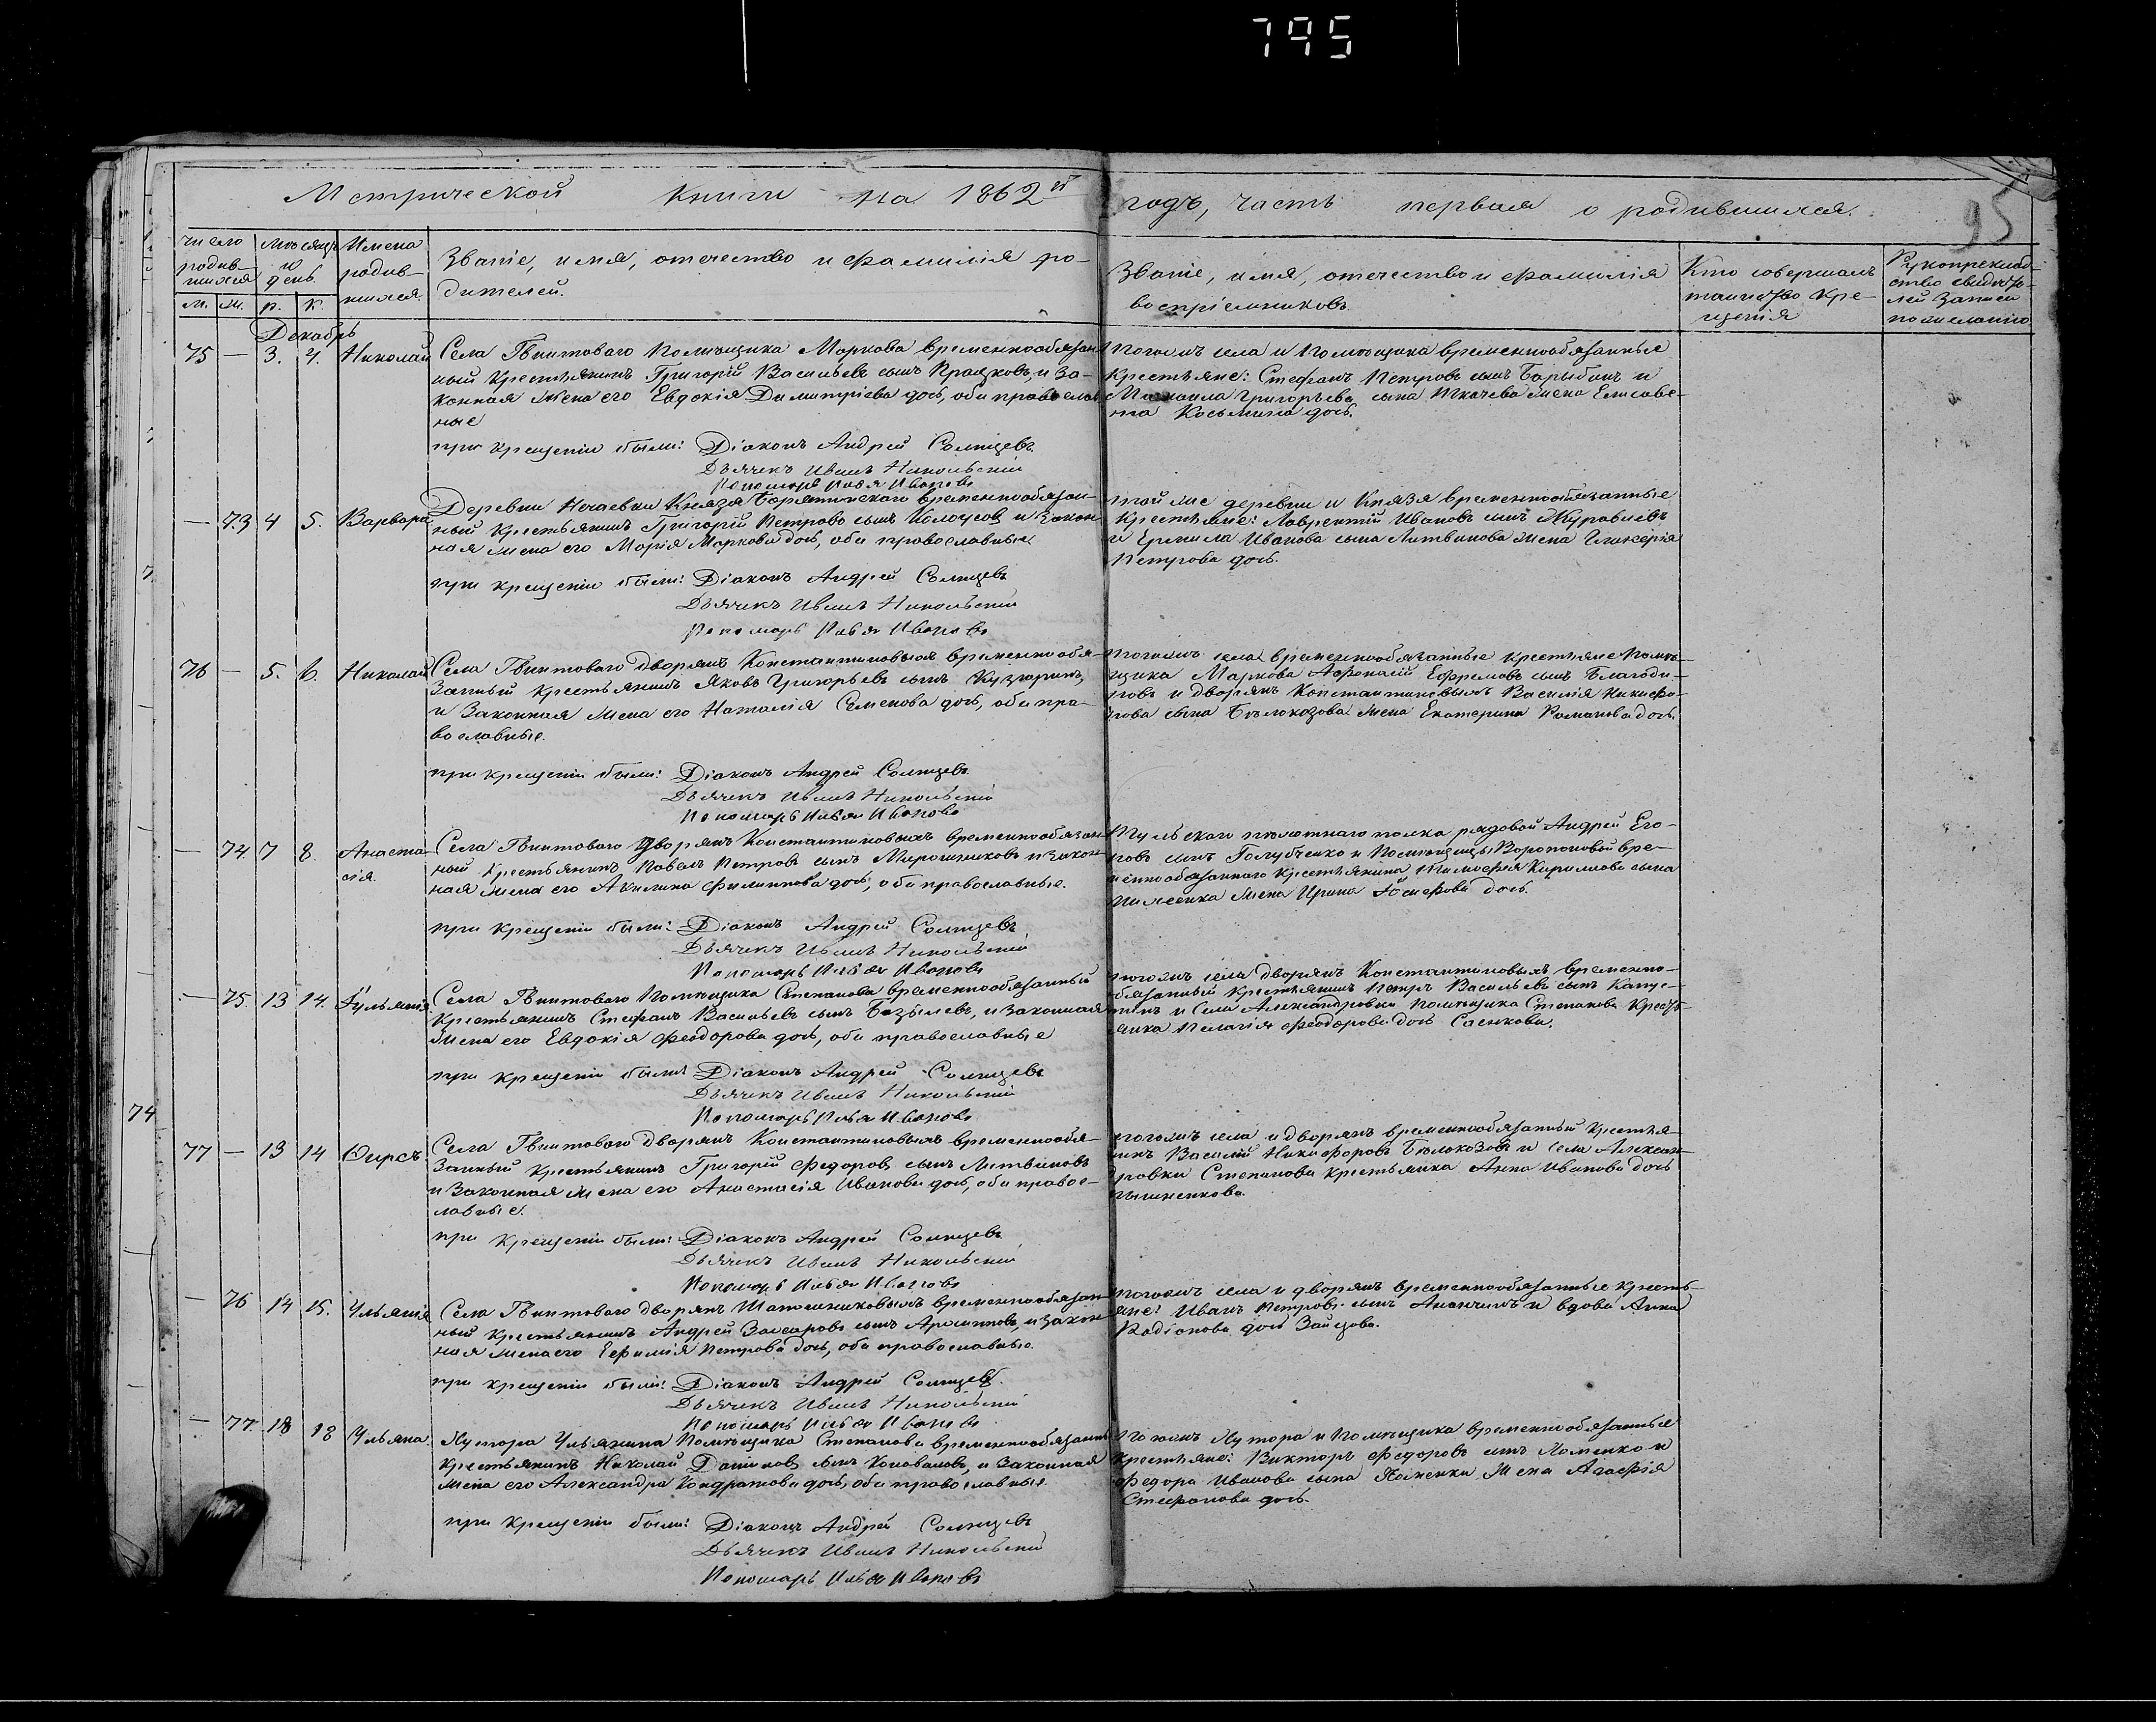 795
Метрической книги на 1862й годъ, часть первая о родившихся.
95
число родив-шихся
мѣсяцъ и день
Имена родив-шихся.
Званіе, имя, отечество и фамилія ро-
дителей.
Званіе, имя, отечество и фамилія
воспріемниковъ.
Кто совершалъ
таинство кре-
щенія
Рукоприклад-
ство свидѣте-
лей записи
по желанію
м. ж. р. к.
Декабрь
75 — 3. 4. Николай
Села Гвинтоваго помѣщика Маркова временнообязан-
ный крестьянинъ Григорій Васильевъ сынъ и за-
конная жена его Евдокія Димитріева дочь, оба православ-
ные
при крещеніи были: Діаконъ Андрей Солнцевъ
Дьячекъ Иванъ Никольскій
Пономарь Илья Ивановъ
тогожъ села и помѣщика временнообязанные
крестьяне: Стефанъ Петровъ сынъ Барыбинъ и
Михаила Григорьева сына Ткачева жена Елисаве-
та Косьмина дочь.
— 73 4 5. Варвара
Деревни Нечаевки Князя Барятинскаго временнообязан-
ный крестьянинъ Григорій Петровъ сынъ и закон-
ная жена его Марія Маркова дочь, оба православные
при крещеніи были: Діаконъ Андрей Солнцевъ
Дьячекъ Иванъ Никольскій
Пономарь Илья Ивановъ
той же деревни и Князя временнообязанные
крестьяне: Лаврентій Ивановъ сынъ Журавлевъ
и Ермила Иванова сына Литвинова жена Гликерія
Петрова дочь.
76 — 5. 6. Николай
Села Гвинтоваго дворянъ Константиновыхъ временнообя-
занный крестьянинъ Яковъ Григорьевъ сынъ
и законная жена его Наталія Семенова дочь, оба пра-
вославные.
при крещеніи были: Діаконъ Андрей Солнцевъ
Дьячекъ Иванъ Никольскій
Пономарь Илья Ивановъ
тогожъ села временнообязанные крестьяне помѣ-
щика Маркова Афонасій Ефремовъ сынъ Благоди-
ровъ и дворянъ Константиновыхъ Василія Никифо-
рова сына Бѣлокозова жена Екатерина Романова дочь.
— 74. 7 8. Анаста-
сія.
Села Гвинтоваго дворянъ Константиновыхъ временнообязан-
ный крестьянинъ Павелъ Петровъ сынъ Мирошниковъ и закон-
ная жена его Акилина Филиппова дочь, оба православные.
при крещеніи были: Діаконъ Андрей Солнцевъ
Дьячекъ Иванъ Никольскій
Пономарь Илья Ивановъ
Тульскаго пѣхотнаго полка рядовой Андрей Его-
ровъ сынъ Голубченко и помѣщицы Воропоновой вре-
меннообязаннаго крестьянина Тимофея Кирилова сына
жена Ирина Іосифова дочь.
— 75. 13 14. Іуліанія
Села Гвинтоваго помѣщика Степанова временнообязанный
крестьянинъ Стефанъ Васильевъ сынъ Базылевъ, и законная
жена его Евдокія Феодорова дочь, оба православные
при крещеніи были: Діаконъ Андрей Солнцевъ
Дьячекъ Иванъ Никольскій
Пономарь Илья Ивановъ
тогожъ села дворянъ Константиновыхъ временно-
обязанный крестьянинъ Петръ Васильевъ сынъ Капус-
тинъ и села Александровки помѣщика Степанова крест-
янка Пелагія Феодорова дочь Саенкова.
74
77 — 13 14 Ѳирсъ
Села Гвинтоваго дворянъ Константиновыхъ временнообя-
занный крестьянинъ Григорій Федоровъ сынъ Литвиновъ
и законная жена его Анастасія Иванова дочь, оба правос-
лавные.
при крещеніи были: Діаконъ Андрей Солнцевъ
Дьячекъ Иванъ Никольскій
Пономарь Илья Ивановъ
тогожъ села и дворянъ временнообязанный крестья-
нинъ Василій Никифоровъ Бѣлокозовъ и села Алексан-
дровки Степанова крестьянка Анна Иванова дочь
— 76 14 15. Ульянія
Села Гвинтоваго дворянъ Шапошниковыхъ временнообязан-
ный крестьянинъ Андрей сынъ и закон-
ная жена его Ефимія Петрова дочь, оба православные.
при крещеніи были: Діаконъ Андрей Солнцевъ.
Дьячекъ Иванъ Никольскій
Пономарь Илья Ивановъ
тогожъ села и дворянъ временнообязанные кресть-
яне: Иванъ Петровъ сынъ Ананьинъ и вдова Анна
Родіонова дочь Зайцова.
— 77 18 18 Ульяна
Хутора Ульянина помѣщика Степанова временнообязанн
крестьянинъ Николай Даниловъ сынъ Коноваловъ, и законная
жена его Александра Кондратова дочь, оба православные
при крещеніи были: Діаконъ Андрей Солнцевъ
Дьячекъ Иванъ Никольскій
Пономарь Илья Ивановъ
тогожъ хутора и помѣщика временнообязанные
крестьяне: Викторъ Федоровъ сынъ Хоменко и
Федора Иванова сына жена Агафія
Стефанова дочь.